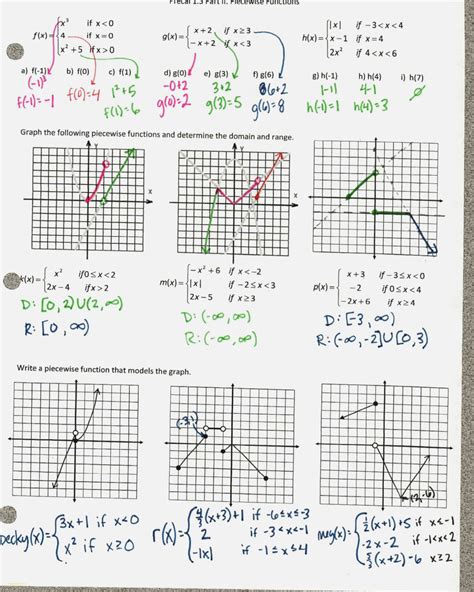 Precal 1.3 Part II: Piecewise Functions
f(x)= { x³ if x<0
4 if x=0
x²+5 if x>0
g(x)= { x+2, if x≥3
-x+2 if x<3
h(x)= { |x| if -3<x<4
x-1 if x=4
2x² if 4<x<6
a) f(-1) b) f(0) c) f(1) d) g(0) e) g(3) f) g(6) g) h(-1) h) h(4) i) h(7)
(-1)³ f(0)=4 1²+5 -0+2 3+2 6+2 |-1| 4-1 ∅
f(-1)=-1 f(1)=6 g(0)=2 g(3)=5 g(6)=8 h(-1)=1 h(4)=3
Graph the following piecewise functions and determine the domain and range.
Y
X
Y
X
k(x)= { x² if 0≤x<2
2x-4 if x>2
m(x)= { -x²+6 if x<-2
|x| if -2≤x<3
2x-5 if x≥3
p(x)= { x+3 if -3≤x<0
-2 if 0≤x<4
-2x+6 if x≥4
D: [0,2)∪(2,∞)
R: [0,∞)
D: (-∞,∞)
R: (-∞,∞)
D: [-3,∞)
R: (-∞,-2]∪[0,3)
Write a piecewise function that models the graph.
(-3,1)
(2,-6)
Becky(x)= { 3x+1 if x<0
x² if x≥0
r(x)= { 4/3(x+3)+1 if -6≤x≤-3
2 if -3<x<-1
-|x| if -1≤x≤4
mrg(x)= { 1/2(x+1)+5 if x≤-1
-2x-2 if -1<x<2
5/3(x+2)-6 x≥2